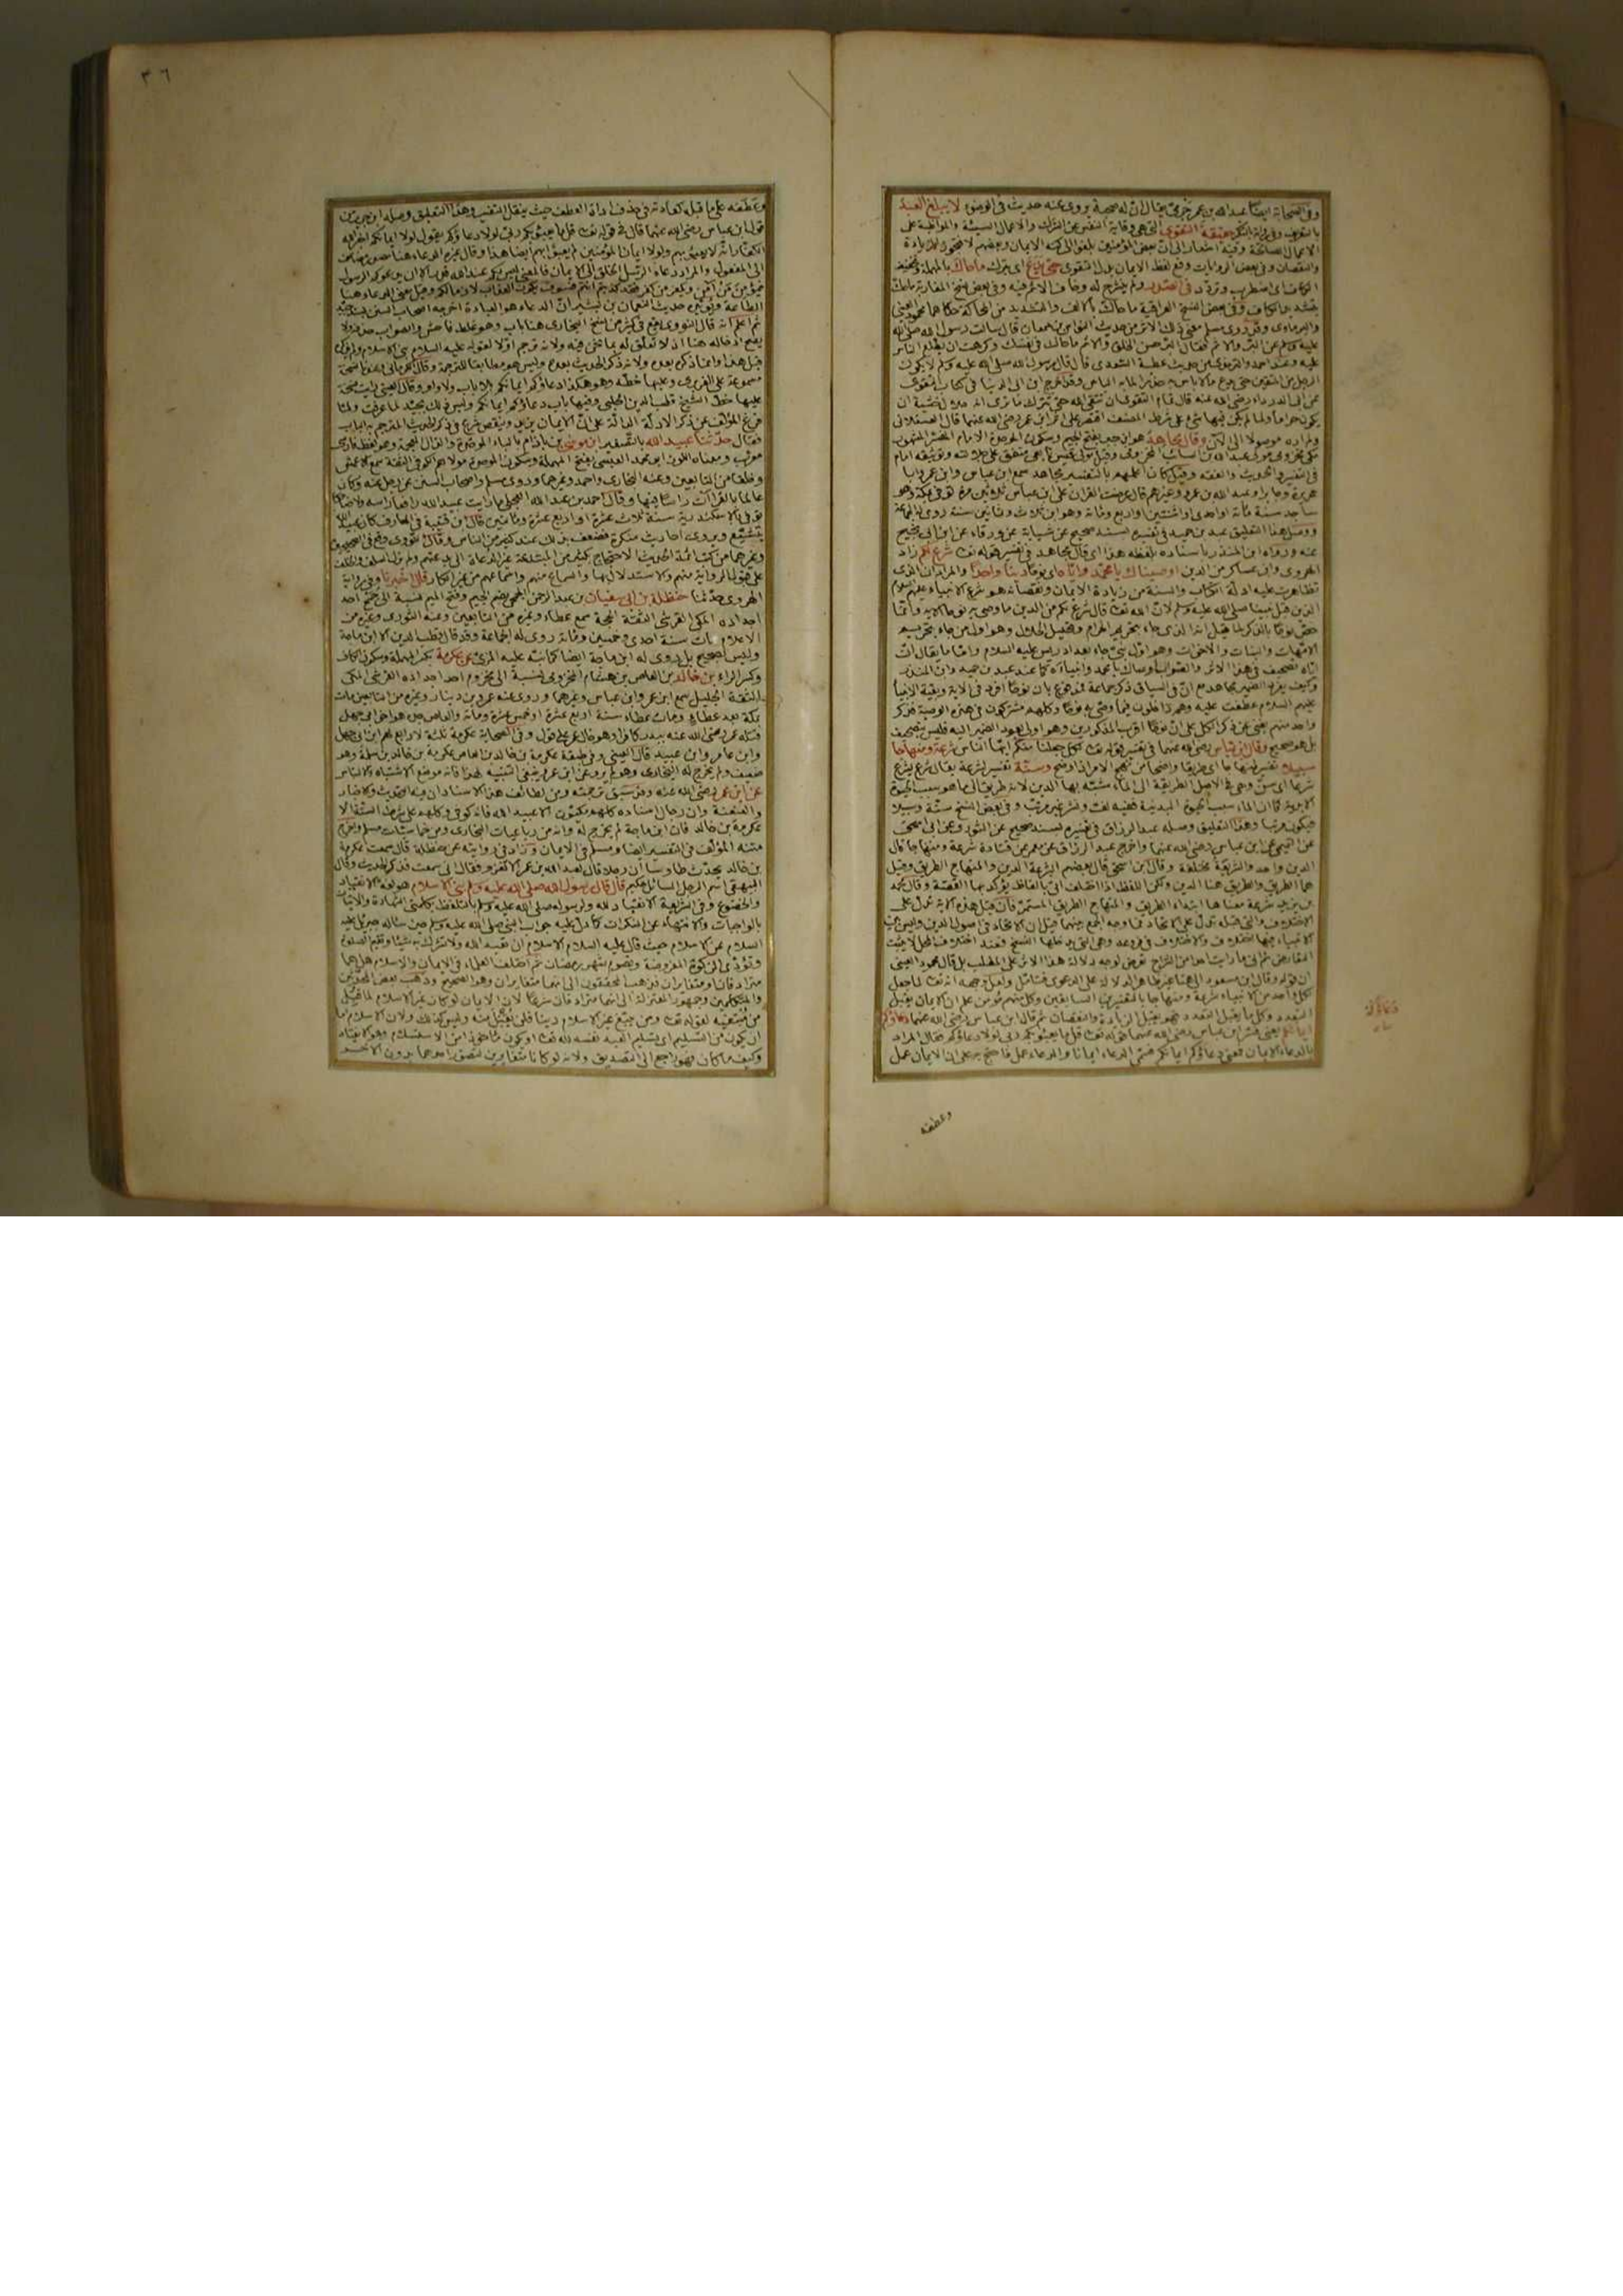 وفى الصحابة ايضا عبد الله بن عمر حزمى يقال ان له صحبة يروى عنه حديث فى الوضوء لا يبلغ العبد
بالتعريف وفى رواية بالتنكير حقيقة التقوى التى هى وقاية النفس عن الشرك والاعمال السيئة والمواظبة على
الاعمال الصالحة وفيه اشعار الى ان بعض المؤمنين بلغوا الى كنه الايمان وبعضهم لا
والنقصان وفى بعض الروايات وقع لفظ الايمان بدل التقوى حتى يدع اى يترك ما حاك بالمهملة وتخفيف
الكاف اى اضطرب وتردد فى الصدر ولم ينشرح له وخاف الاثم فيه وفى بعض نسخ المغاربة ما حك
بتشديد الكاف وفى بعض النسخ العراقية ما حاك بالالف والتشديد من المحاكة حكاهما محمود العينى
والبرماوى وقد روى مسلم معنى ذلك الاثر من حديث النواس بن سمعان قال سالت رسول الله صلى الله
عليه وسلم عن البر والاثم فقال البر حسن الخلق والاثم ما حاك فى نفسك وكرهت ان يطلع الناس
عليه وعند احمد والترمذى من حديث عطية السعدى قال قال رسول الله صلى الله عليه وسلم لا يكون
الرجل من المتقين حتى يدع ما لا باس به حذرا لما به الباس وقد اخرج ابن ابى الدنيا فى كتاب التقوى
عن ابى الدرداء رضى الله عنه قال تمام التقوى ان تتقى الله حتى تترك ما ترى انه حلال خشية ان
يكون حراما ولما لم يكن فيها شئ على شرط المصنف اقتصر على اثر ابن عمر رضى الله عنهما قال العسقلانى
ولم اره موصولا الى الان وقال مجاهد هو ابن جبر بفتح الجيم وسكون الموحدة الامام المفسر المشهور
مكى مخزومى مولى عبد الله بن السائب المخزومى وقيل مولى قيس تابعى متفق على جلالته وتوثيقه امام
فى التفسير والحديث والفقه وقيل كان اعلمهم بالتفسير مجاهد سمع ابن عباس وابن عمر وابا
هريرة وجابرا وعبد الله بن عمرو وغيرهم قال عرضت القران على ابن عباس ثلاثين مرة توفى بمكة وهو
ساجد سنة مائة او احدى او اثنتين او اربع ومائة وهو ابن ثلاث وثمانين سنة روى له الجماعة
ووصل هذا التعليق عبد بن حميد فى تفسيره بسند صحيح عن شبابة عن ورقاء عن ابن ابى نجيح
عنه ورواه ابن المنذر باسناده بلفظه هذا اى قال مجاهد فى تفسير قوله تعالى شرع لكم زاد
الهروى وابن عساكر من الدين اوصيناك يا محمد واياه اى نوحا دينا واحدا والمراد ان الذى
تظاهرت عليه ادلة الكتاب والسنة من زيادة الايمان ونقصانه هو شرع الانبياء عليهم السلام
الذين قبل نبينا صلى الله عليه وسلم لان الله تعالى قال شرع لكم من الدين ما وصى به نوحا الاية وانما
خص نوحا بالذكر لما قيل انه الذى جاء بتحريم الحرام وتحليل الحلال وهو اول من جاء بتحريم
الامهات والبنات والاخوات وهو اول نبى جاء بعد ادريس عليه السلام واما ما يقال ان
اياه تصحيف فى هذا الاثر والصواب اوصاك يا محمد وانبياءه كما عند عبد بن حميد وابن المنذر
وكيف يفرد الضمير مجاهد مع ان فى السياق ذكر جماعة فمدفوع بان نوحا افرد فى الاية وبقية الانبياء
عليهم السلام عطفت عليه وهم داخلون فيما وصى به نوحا وكلهم مشتركون فى هذه الوصية فذكر
واحد منهم يغنى عن ذكر الكل على ان نوحا اقرب المذكورين وهو اولى بعود الضمير اليه فليس بتصحيف
بل هو صحيح وقال ابن عباس رضى الله عنهما فى تفسير قوله تعالى لكل جعلنا منكم ايها الناس شرعة ومنهاجا
سبيلا تفسير لمنهاجا اى طريقا واضحا من نهج الامر اذا وضح وسنة تفسير لشرعة يقال شرع يشرع
شرعا اى سن وهى فى الاصل الطريقة الى الماء شبه بها الدين لانه طريق الى ما هو سبب الحيوة
الابدية كما ان الماء سبب الحيوة البدنية ففيه لف ونشر غير مرتب وفى بعض النسخ سنة وسبيلا
فيكون مرتبا وهذا التعليق وصله عبد الرزاق فى تفسيره بسند صحيح عن الثورى عن ابى اسحق
عن التيمى عن ابن عباس رضى الله عنهما واخرج عبد الرزاق عن معمر عن قتادة شرعة ومنهاجا قال
الدين واحد والشريعة مختلفة وقال ابن اسحق قال بعضهم الشرعة الدين والمنهاج الطريق وقيل
هما الطريق والطريق هنا الدين ولكن اللفظ اذا اختلف اتى بالفاظ يؤكد بها القصة وقال محمد
بن يزيد شرعة معناها ابتداء الطريق والمنهاج الطريق المستمر فان قيل هذه الاية تدل على
الاختلاف والتى قبله تدل على الاتحاد فما وجه الجمع بينهما قيل ان الاتحاد فى اصول الدين وليس بين
الانبياء فيها اختلاف والاختلاف فى فروعه وهى التى يدخلها النسخ وعند اختلاف المحل لا يثبت
التعارض ثم انى ما رايت احدا من الشراح تعرض لوجه دلالة هذا الاثر على المطلب بل قال محمود العينى
ان قوله وقال ابن مسعود الى هنا غير ظاهر الدلالة على الدعوى فتامل ولعل وجهه انه تعالى لما جعل
لكل واحد من الانبياء شرعة ومنهاجا
التعدد وكل ما يقبل التعدد فهو يقبل الزيادة والنقصان ثم قال ابن عباس رضى الله عنهما دعاؤكم
ايمانكم يعنى فسر ابن عباس رضى الله عنهما قوله تعالى قل ما يعبؤ بكم ربى لولا دعاؤكم فقال المراد
بالدعاء الايمان فمعنى دعاؤكم ايمانكم فسمى الدعاء ايمانا والدعاء عمل فاحتج به على ان الايمان عمل
وعطفه
دعاؤكم
٣٦
وعطفه على ما قبله كعادته فى حذف اداة العطف حيث ينقل التفسير وهذا التعليق وصله ابن جرير من
قول ابن عباس رضى الله عنهما قال فى قوله تعالى قل ما يعبؤ بكم ربى لولا دعاؤكم يقول لولا ايمانكم اخبر الله
الكفار انه لا يعبؤ بهم ولولا ايمان المؤمنين لم يعبؤ بهم ايضا هذا وقال غيره الدعاء هنا مصدر مضاف
الى المفعول والمراد دعاء الرسل الخلق الى الايمان فالمعنى ليس لكم عند الله قدر الا ان يدعوكم الرسول
فيؤمن من آمن ويكفر من كفر فقد كذبتم انتم فسوف يكون العذاب لازما لكم وقيل معنى الدعاء هنا
الطاعة ويؤيده حديث النعمان بن بشير ان الدعاء هو العبادة اخرجه اصحاب السنن بسند جيد
ثم اعلم انه قال النووى يقع فى كثير من نسخ البخارى هنا باب وهو غلط فاحش والصواب حذفه ولا
يصح ادخاله هنا اذ لا تعلق له بما نحن فيه ولانه ترجم اولا لقوله عليه السلام بنى الاسلام ولم يذكره
قبل هذا وانما ذكره بعده ولانه ذكر الحديث بعده وليس هو مطابقا للترجمة وقال الكرمانى وعندنا نسخة
مسموعة على الفربرى وعليها خطه وهو هكذا دعاؤكم ايمانكم بلا باب ولا واو وقال العينى رايت نسخة
عليها خط الشيخ قطب الدين الحلبى وفيها باب دعاؤكم ايمانكم وليس ذلك بجيد لما عرفت ولما
فرغ المؤلف عن ذكر الادلة الدالة على ان الايمان يزيد وينقص شرع فى ذكر الحديث المترجم به الباب
فقال حدثنا عبيد الله بالتصغير ابن موسى بن باذام بالباء الموحدة والذال المعجمة وهو لفظ فارسى
معرب ومعناه اللوز ابو محمد العبسى بفتح المهملة وسكون الموحدة مولاهم الكوفى الثقة سمع الاعمش
وخلقا من التابعين وعنه البخارى واحمد وغيرهما وروى مسلم واصحاب السنن عن رجل عنه وكان
عالما بالقرآن راسا فيها وقال احمد بن عبد الله العجلى ما رايت عبيد الله رافعا راسه ولا ضاحكا
توفى بالاسكندرية سنة ثلاث عشرة او اربع عشرة ومائتين قال ابن قتيبة فى المعارف كان عبيد الله
يتشيع ويروى احاديث منكرة فضعف بذلك عند كثير من الناس وقال النووى وقع فى الصحيحين
وغيرهما من كتب ائمة الحديث الاحتجاج بكثير من المبتدعة غير الدعاة الى بدعتهم ولم تزل السلف والخلف
على قبول الرواية منهم والاستدلال بها والسماع منهم واسماعهم من غير انكار قال اخبرنا وفى رواية
الهروى حدثنا حنظلة بن ابى سفيان بن عبد الرحمن الجمحى بضم الجيم وفتح الميم نسبة الى جمح احد
اجداده المكى القرشى الثقة الحجة سمع عطاء وغيره من التابعين وعنه الثورى وغيره من
الاعلام مات سنة احدى وخمسين ومائة روى له الجماعة وقد قال قطب الدين الا ابن ماجة
وليس بصحيح بل روى له ابن ماجة ايضا كما نبه عليه المزى عن عكرمة بكسر المهملة وسكون الكاف
وكسر الراء بن خالد بن العاص بن هشام المخزومى نسبة الى مخزوم احد اجداده القرشى المكى
الثقة الجليل سمع ابن عمر وابن عباس وغيرهما وروى عنه عمرو بن دينار وغيره من التابعين مات
بمكة بعد عطاء ومات عطاء سنة اربع عشرة او خمس عشرة ومائة والعاص جده هو اخو ابى جهل
قتله عمر رضى الله عنه ببدر كافرا وهو خال عمر على قول وفى الصحابة عكرمة ثلثة لا رابع لهم ابن ابى جهل
وابن عامر وابن عبيد قال العينى وفى طبقة عكرمة بن خالد بن العاص عكرمة بن خالد بن سلمة وهو
ضعيف ولم يخرج له البخارى وهو لم يرو عن ابن عمر ينبغى التنبيه لهذا فانه موضع الاشتباه والالتباس
عن ابن عمر رضى الله عنه وقد سبق ترجمته ومن لطائف هذا الاسناد ان فيه التحديث والاخبار
والعنعنة وان رجال اسناده كلهم مكيون الا عبيد الله فانه كوفى وكلهم على شرط الستة الا
عكرمة بن خالد فان ابن ماجة لم يخرج له وانه من رباعيات البخارى ومن خماسيات مسلم واخرج
متنه المؤلف فى التفسير ايضا ومسلم فى الايمان وزاد فى روايته عن حنظلة قال سمعت عكرمة
بن خالد يحدث طاوسا ان رجلا قال لعبد الله بن عمر الا تغزو فقال انى سمعت فذكر الحديث وقال
البيهقى اسم الرجل السائل حكيم قال قال رسول الله صلى الله عليه وسلم بنى الاسلام هو لغة الانقياد
والخضوع وفى الشريعة الانقياد لله ولرسوله صلى الله عليه وسلم بالتلفظ بكلمتى الشهادة والاتيان
بالواجبات والانتهاء عن المنكرات كما دل عليه جواب النبى صلى الله عليه وسلم حين ساله جبريل عليه
السلام عن الاسلام حيث قال عليه السلام الاسلام ان تعبد الله ولا تشرك به شيئا وتقيم الصلوة
وتؤدى الزكوة المفروضة وتصوم شهر رمضان ثم اختلف العلماء فى الايمان والاسلام هل هما
مترادفان او متغايران فذهب المحققون الى انهما متغايران وهو الصحيح وذهب بعض المحدثين
والمتكلمين وجمهور المعتزلة الى انهما مترادفان شرعا لان الايمان لو كان غير الاسلام لما قبل
من مبتغيه لقوله تعالى ومن يبتغ غير الاسلام دينا فلن يقبل منه وليس كذلك ولان الاسلام اما
ان يكون من التسليم اى تسليم العبد نفسه لله تعالى او يكون ماخوذا من الاستسلام وهو الانقياد
وكيف ما كان فهو راجع الى التصديق ولانه لو كانا متغايرين لتصور احدهما بدون الاخر